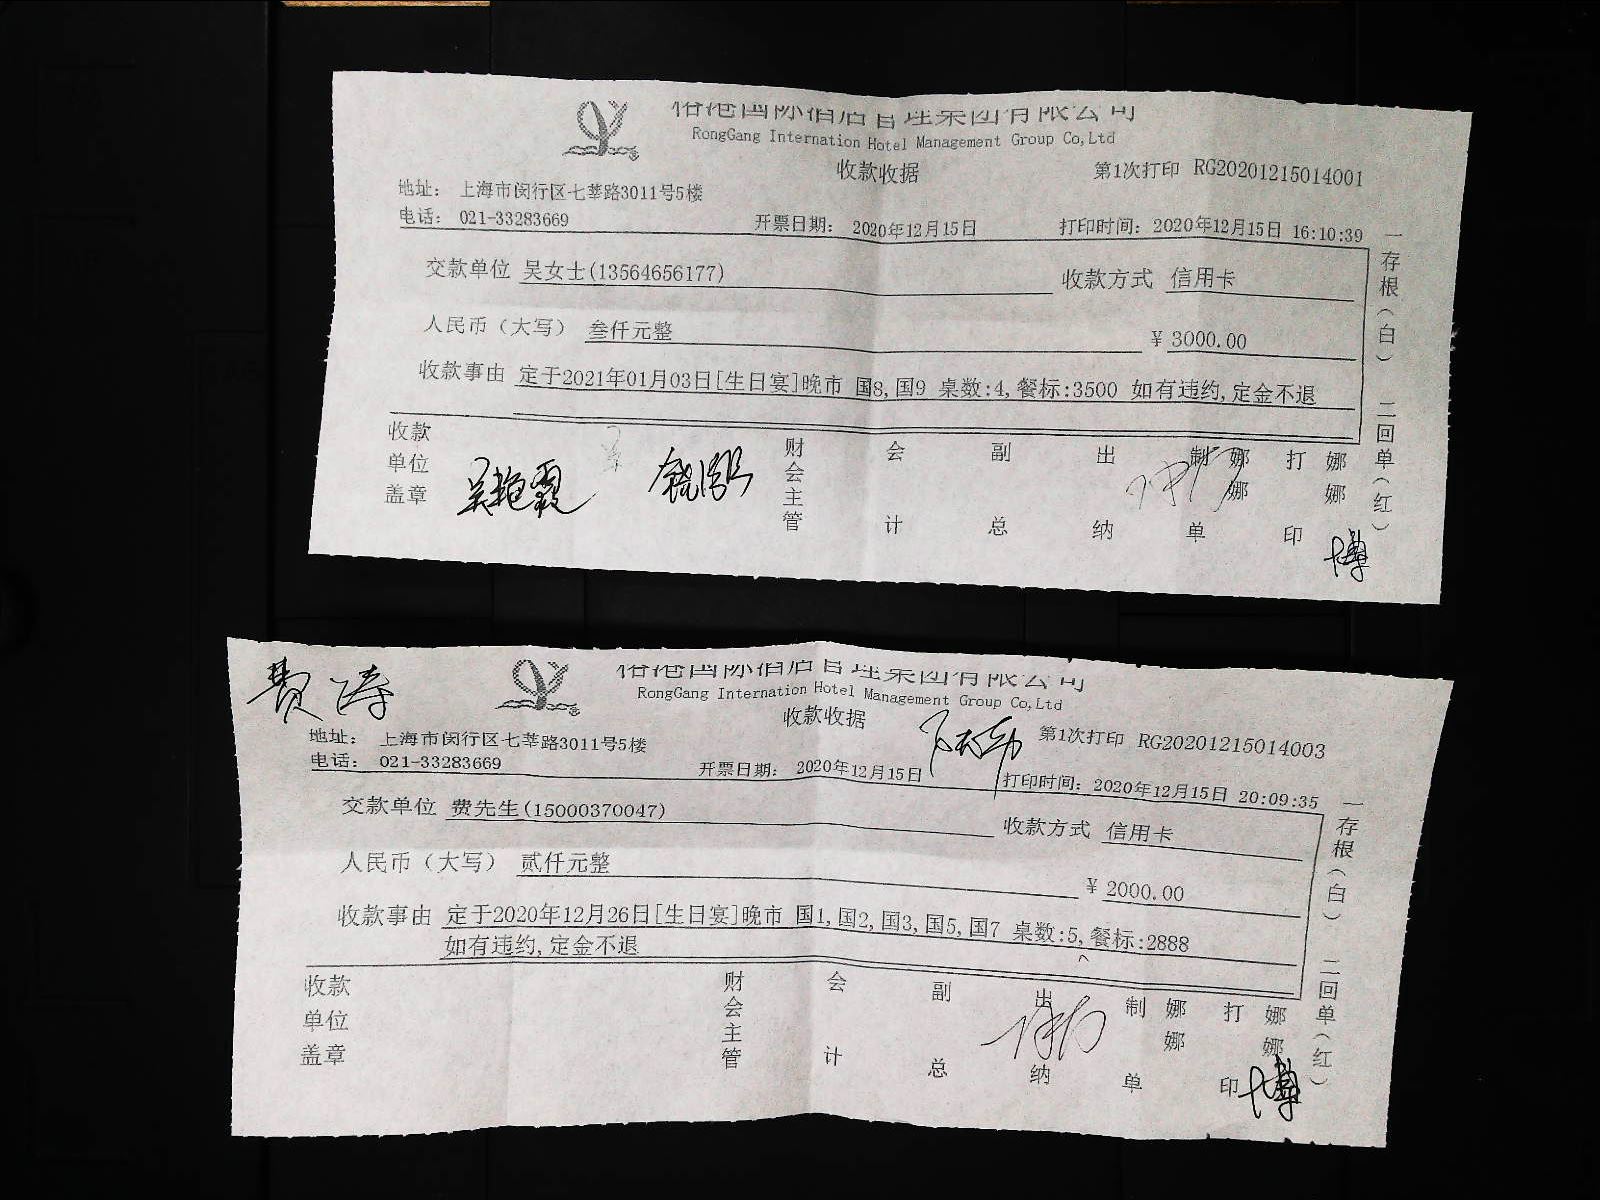 裕港国际酒店管理集团有限公司
RongGang Internation Hotel Management Group Co,Ltd
收款收据
第1次打印 RG20201215014001
地址： 上海市闵行区七莘路3011号5楼
电话： 021-33283669 开票日期： 2020年12月15日 打印时间：2020年12月15日 16:10:39
交款单位 吴女士(13564656177) 收款方式 信用卡
人民币（大写） 叁仟元整 ¥ 3000.00
收款事由 定于2021年01月03日[生日宴]晚市 国8,国9 桌数:4,餐标:3500 如有违约,定金不退
收款单位盖章 吴艳霞 财会主管 会计 副总 出纳 制单 娜娜 打印 娜娜
博
一存根（白） 二回单（红）
费涛
裕港国际酒店管理集团有限公司
RongGang Internation Hotel Management Group Co,Ltd
收款收据
第1次打印 RG20201215014003
地址： 上海市闵行区七莘路3011号5楼
电话： 021-33283669 开票日期： 2020年12月15日 打印时间：2020年12月15日 20:09:35
交款单位 费先生(15000370047) 收款方式 信用卡
人民币（大写） 贰仟元整 ¥ 2000.00
收款事由 定于2020年12月26日[生日宴]晚市 国1,国2,国3,国5,国7 桌数:5,餐标:2888
如有违约,定金不退
收款单位盖章 财会主管 会计 副总 出纳 制单 娜娜 打印 娜娜
博
一存根（白） 二回单（红）